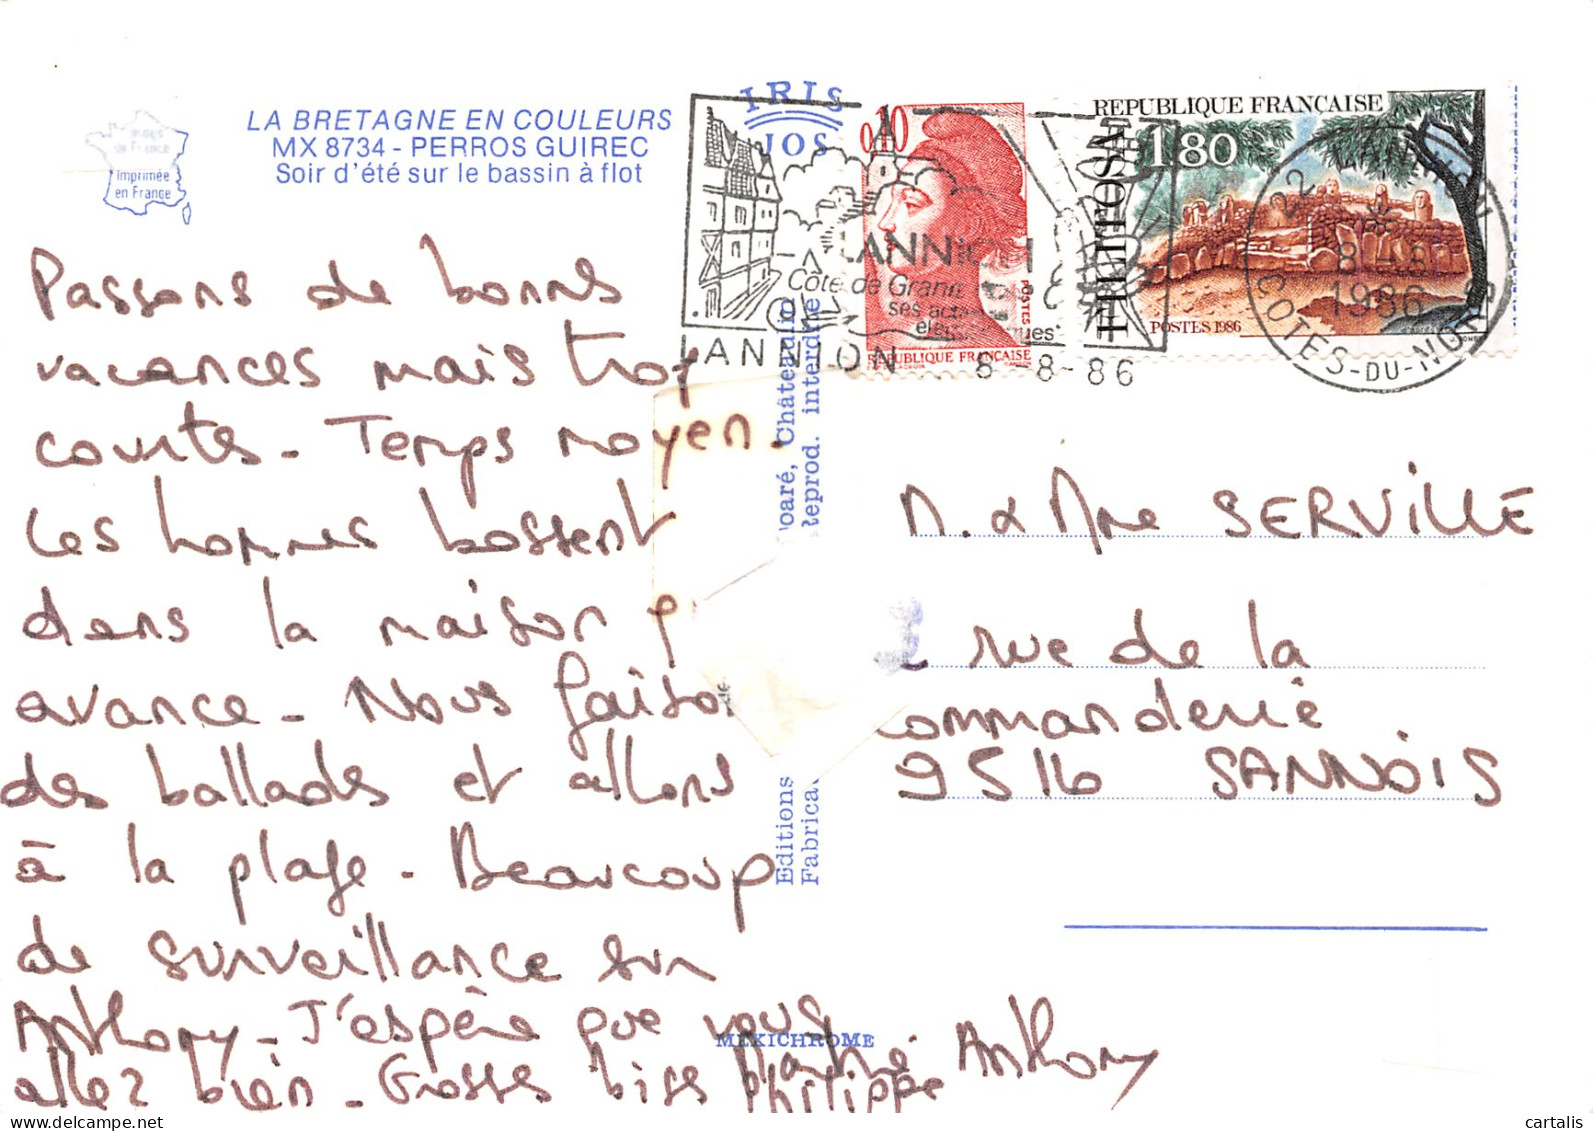 Images
de France
Imprimée
en France
LA BRETAGNE EN COULEURS
MX 8734 - PERROS GUIREC
Soir d'été sur le bassin à flot
IRIS
JOS
LANNION
Côte de Granit
ses
LANNION
8-8-86
0,10
POSTES
REPUBLIQUE FRANÇAISE
REPUBLIQUE FRANÇAISE
1,80
FILITOSA
POSTES 1986
22
8-8
1986
COTES-DU-NORD
Passons de bonnes
vacances mais trop
courtes - Temps moyen.
Les hommes bossent
dans la maison
avance - Nous faison
des ballades et allons
à la plage - Beaucoup
de surveillance sur
Anthony - J'espère que vous
allez bien - Grosses bises
Philippe
Anthony
Châteaulin
Reprod. interdite
Editions
Fabrica
MEXICHROME
M. & Mme SERVILLE
rue de la
commanderie
95110 SANNOIS
cartalis